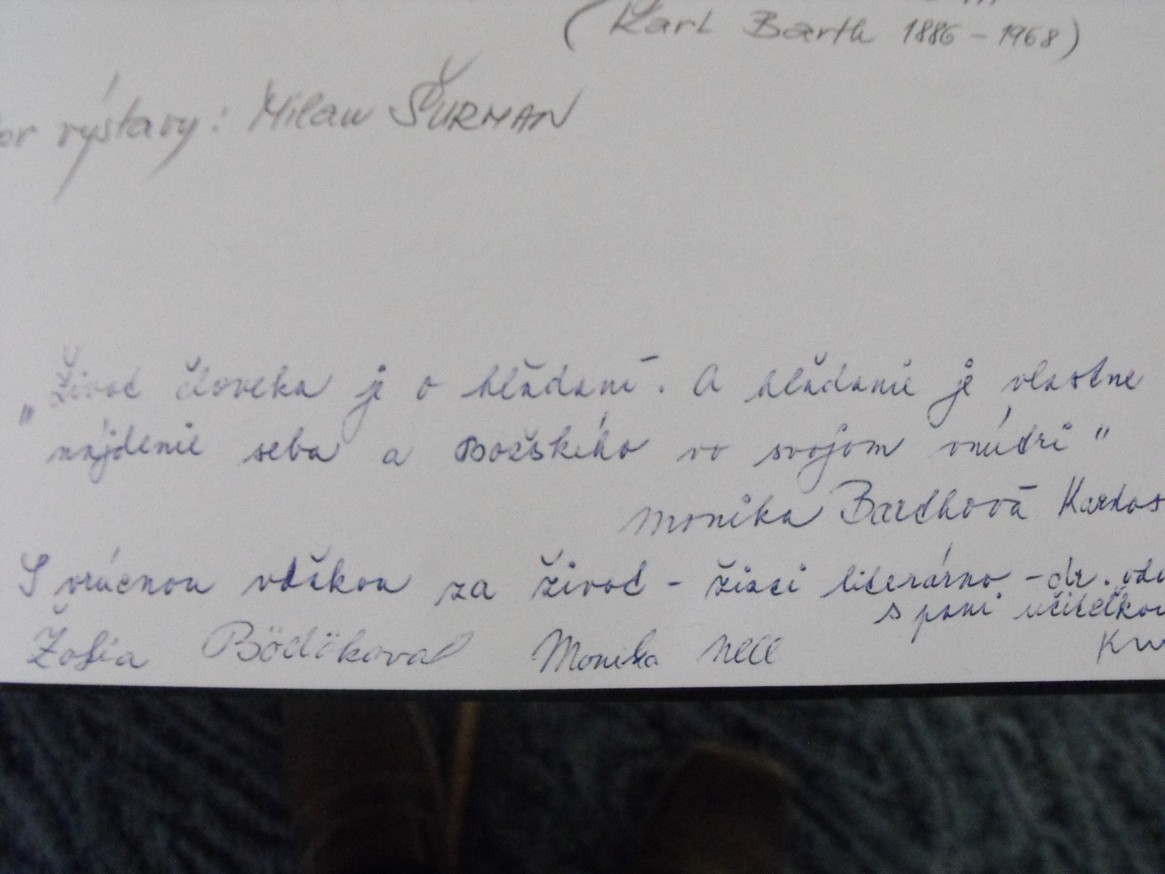 (Karl Barth 1886-1968)
výstavy: Milan ŠURMAN
„Život človeka je o hľadaní. A hľadanie je vlastne
nájdenie seba a Božského vo svojom vnútri"
Monika Bardhová Kardos
S vrúcnou vďakou za život - žiaci literárno-dr.
s pani učiteľkou
Žofia Monika